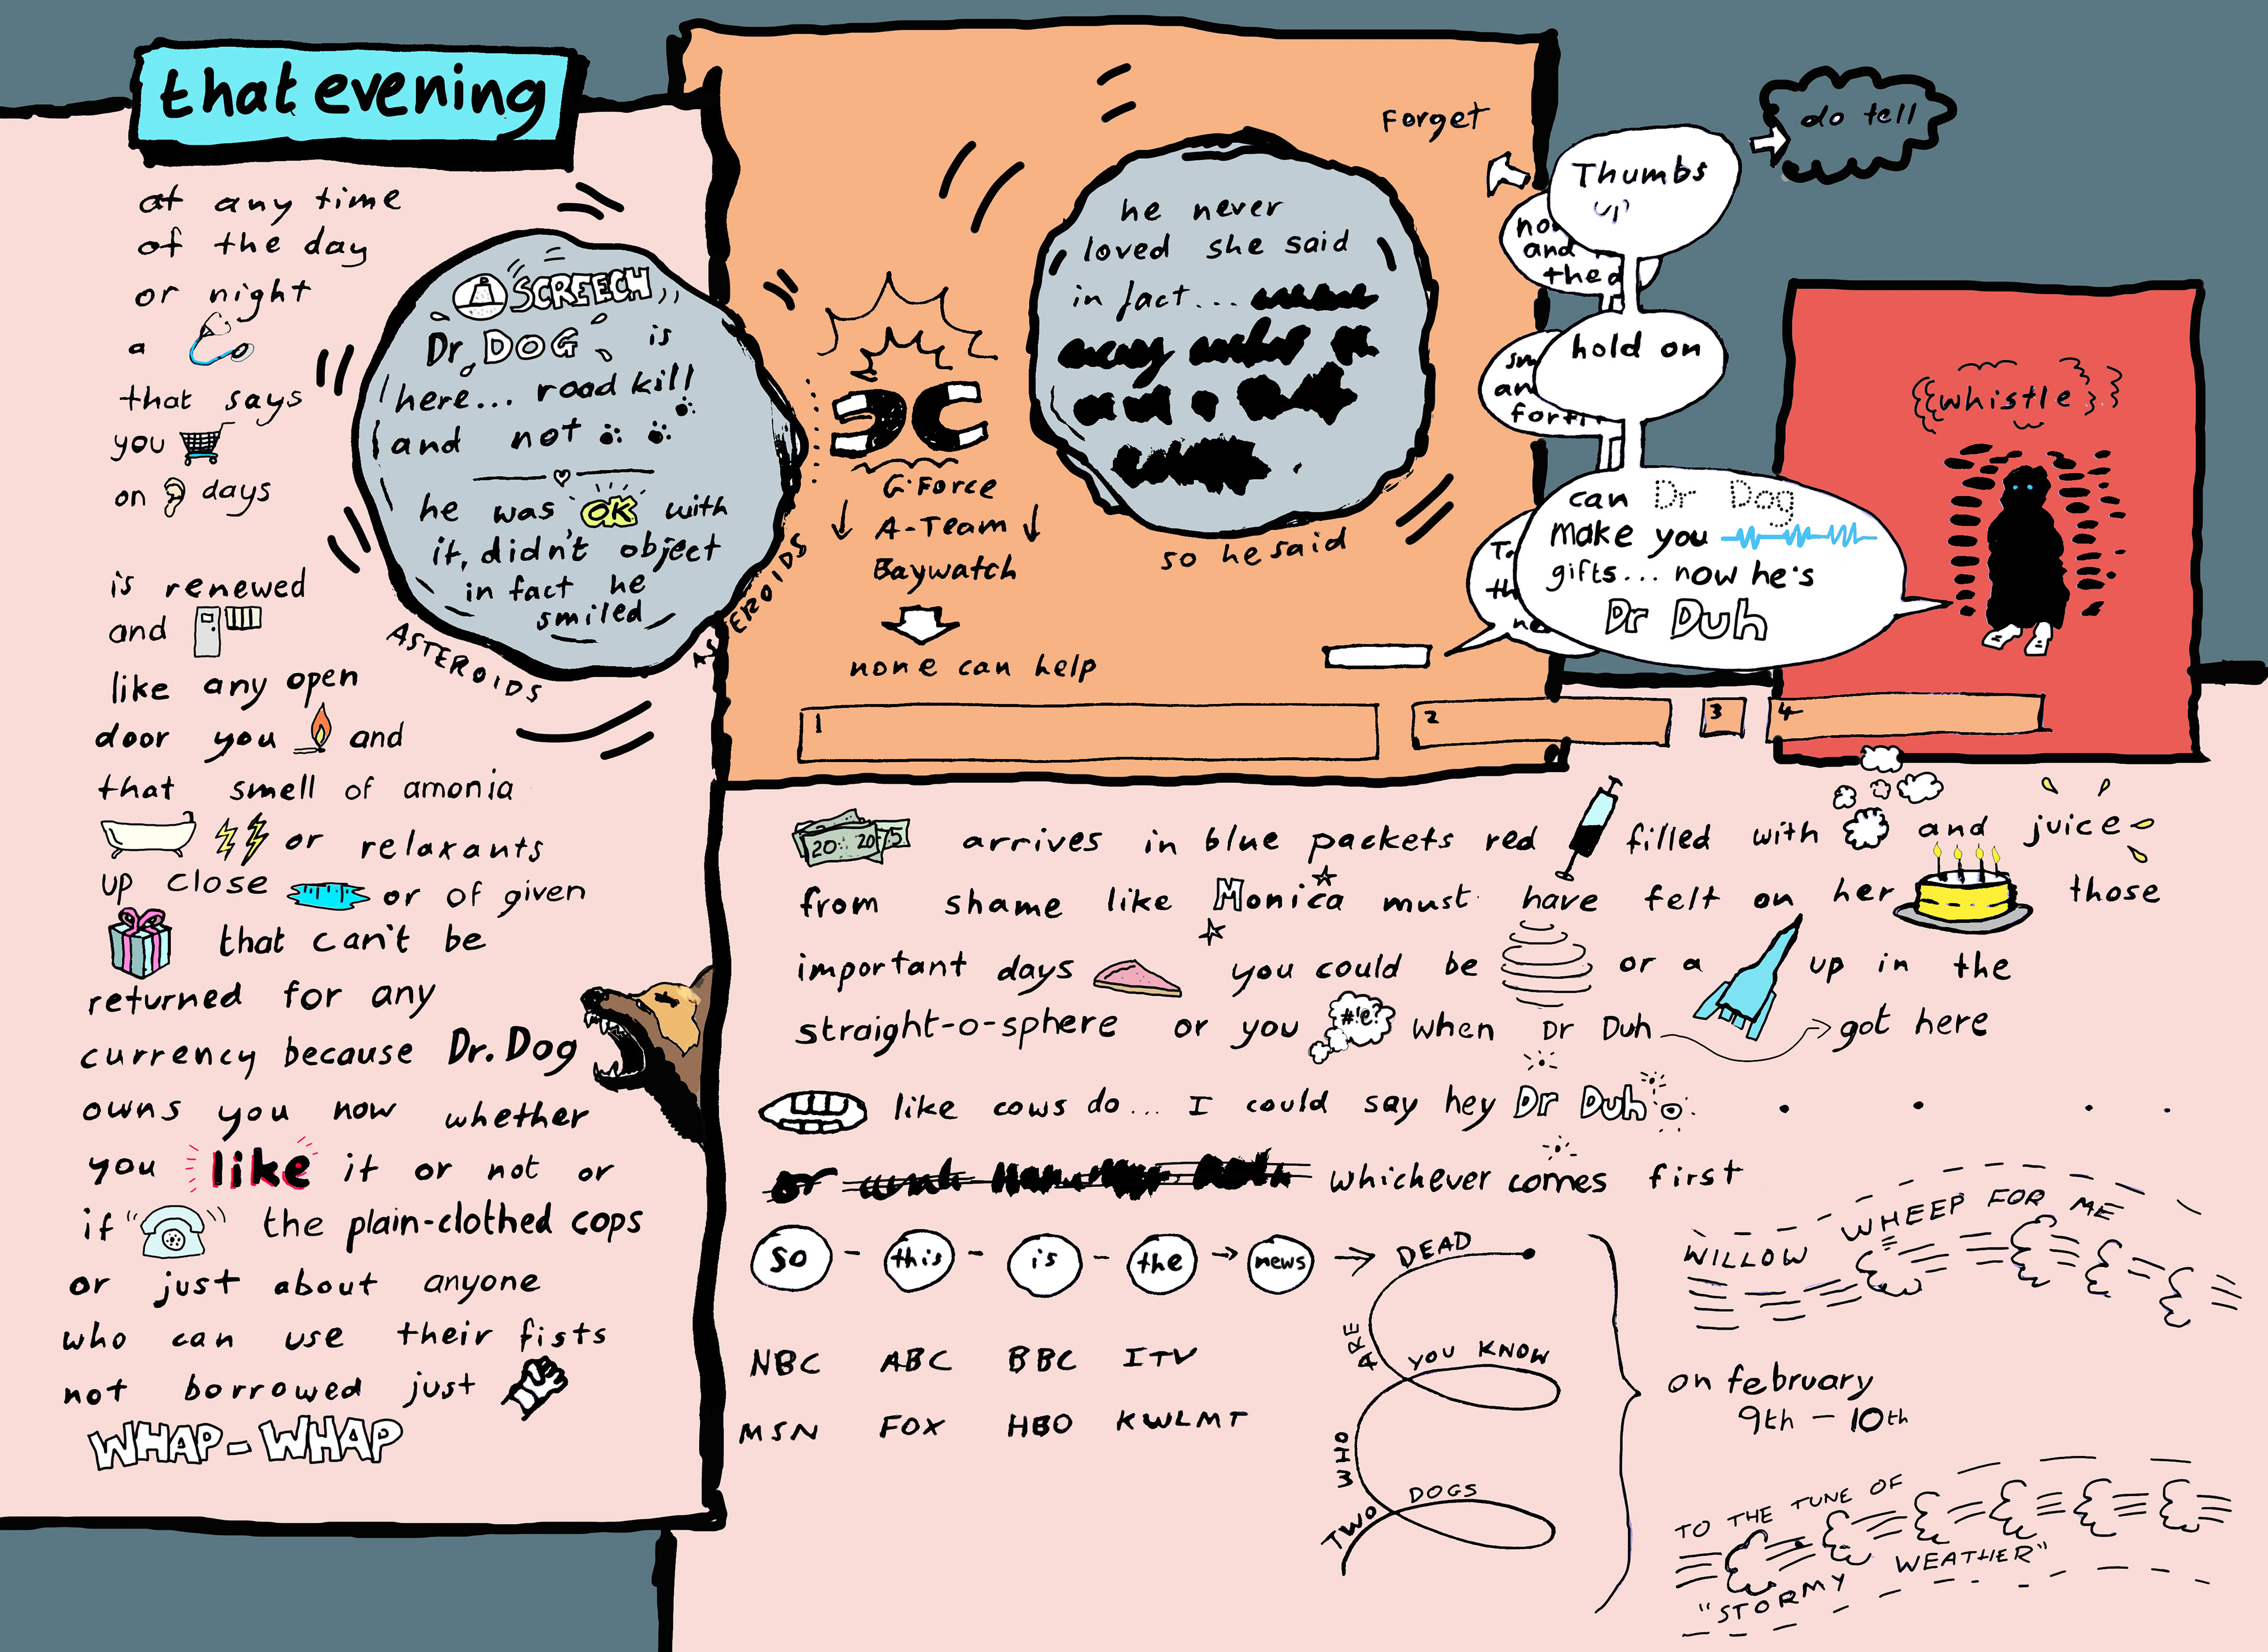 that evening
at any time
of the day
or night
a
that says
you
on days
is renewed
and
like any open
door you and
that smell of amonia
or relaxants
up close or of given
that can't be
returned for any
currency because Dr. Dog
owns you now whether
you like it or not or
if the plain-clothed cops
or just about anyone
who can use their fists
not borrowed just
WHAP-WHAP
SCREECH
Dr DOG is
here... road kill
and not
he was OK with
it, didn't object
in fact he
smiled
ASTEROIDS
ASTEROIDS
G-Force
A-Team
Baywatch
none can help
he never
loved she said
in fact...
so he said
Forget
do tell
Thumbs
up
and
hold on
can Dr Dog
make you
gifts... now he's
Dr Duh
whistle
1
2
3
4
20 20 75
arrives in blue packets red filled with and juice
from shame like Monica must have felt on her those
important days you could be or a up in the
straight-o-sphere or you #!e? when Dr Duh got here
like cows do... I could say hey Dr Duh
or whichever comes first
so - this - is - the news
DEAD
ARE
YOU KNOW
WHO
DOGS
TWO
NBC ABC BBC ITV
MSN FOX HBO KWLMT
WILLOW WHEEP FOR ME
on february
9th - 10th
TO THE TUNE OF
"STORMY WEATHER"